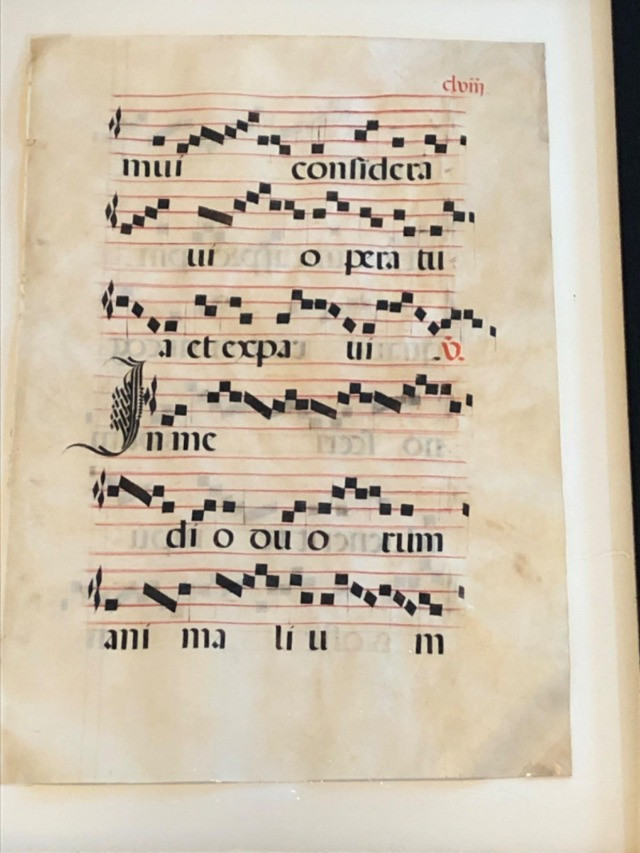 clviii
mui considera
ui o pera tu
a et expa ui .v.
In me
di o du o rum
ani ma li u m